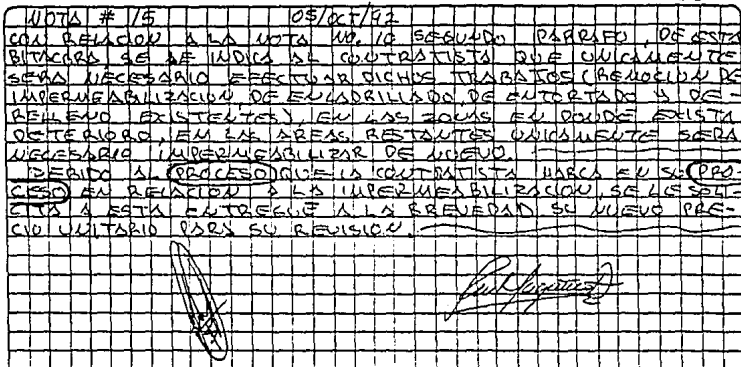 NOTA # 15 05/OCT/92
CON RELACION A LA NOTA NO. 10 SEGUNDO PARRAFO, DE ESTA
BITACORA SE LE INDICA AL CONTRATISTA QUE UNICAMENTE
SERA NECESARIO EFECTUAR DICHOS TRABAJOS (REMOCION DE
IMPERMEABILIZACION, DE ENLADRILLADO, DE ENTORTADO Y DE-
RELLENO EXISTENTES), EN LAS ZONAS EN DONDE EXISTA
DETERIORO, EN LAS AREAS RESTANTES UNICAMENTE SERA
NECESARIO IMPERMEABILIZAR DE NUEVO.
DEBIDO AL PROCESO QUE LA CONTRATISTA MARCA EN SU PRO-
CESO EN RELACION A LA IMPERMEABILIZACION, SE LE SOLI-
CITA A ESTA ENTREGUE A LA BREVEDAD SU NUEVO PRE-
CIO UNITARIO PARA SU REVISION.